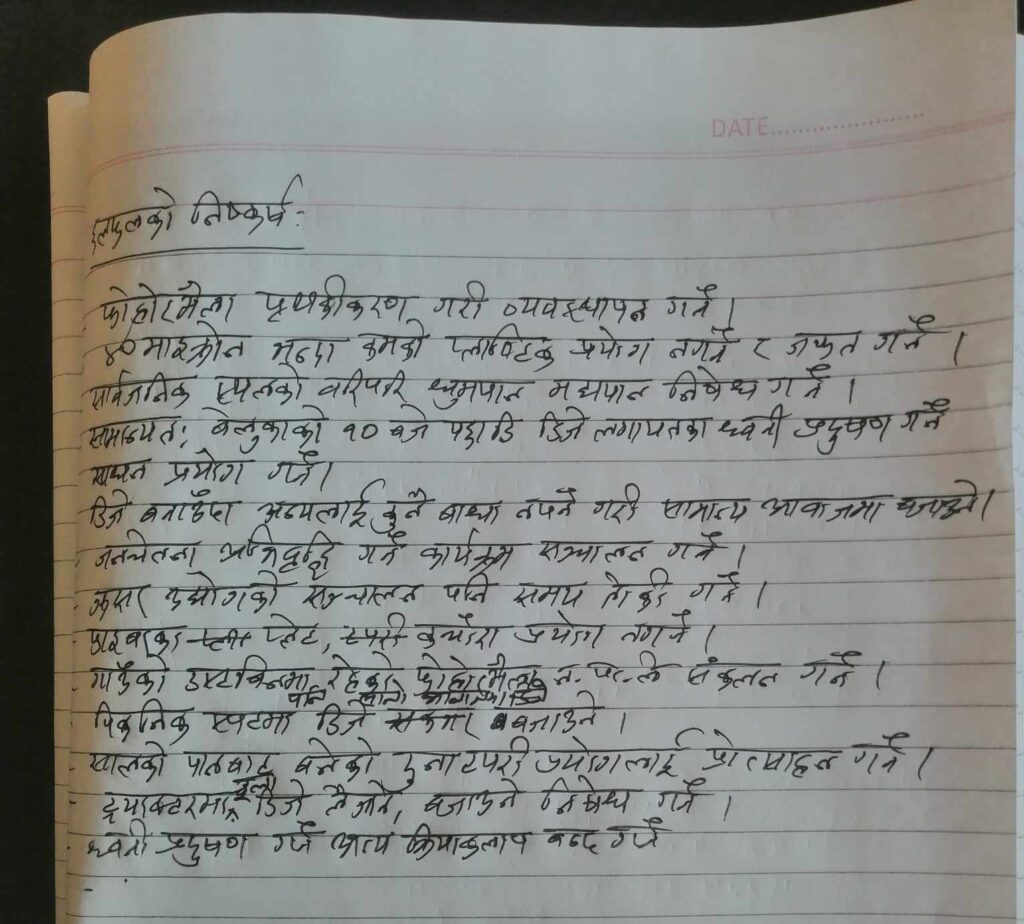 DATE
छलफलको निष्कर्ष:
- फोहोरमैला पृथकीकरण गरी व्यवस्थापन गर्ने ।
- ४० माइक्रोन भन्दा कमको प्लाष्टिक प्रयोग नगर्ने र जफत गर्ने ।
- सार्वजनिक स्थलको वरिपरि धुमपान मद्यपान निषेध गर्ने ।
- सामान्यत: बेलुकाको १० बजे पछाडि डिजे लगायतका ध्वनी प्रदुषण गर्ने
साधन प्रयोग गर्ने।
- डिजे बजाउँदा अन्यलाई कुनै बाधा नपर्ने गरी सामान्य आवाजमा बजाउने।
- जनचेतना अभिवृद्धि गर्ने कार्यक्रम सञ्चालन गर्ने ।
- क्रसर उद्योगको सञ्चालन पनि समय तोकी गर्ने ।
- फाइबरका प्लेट, टपरी कचौरा प्रयोग नगर्ने ।
- गाउँको डस्टबिनमा रहेको फोहोरमैला न.पा.ले संकलन गर्ने ।
- पिकनिक स्पटमा पनि डिजे बजाउने ।
- सालको पातबाट बनेको दुना टपरी प्रयोगलाई प्रोत्साहन गर्ने ।
- ट्र्याक्टरमा ठूला डिजे लैजाने, बजाउने निषेध गर्ने ।
- ध्वनी प्रदुषण गर्ने अन्य क्रियाकलाप बन्द गर्ने
-